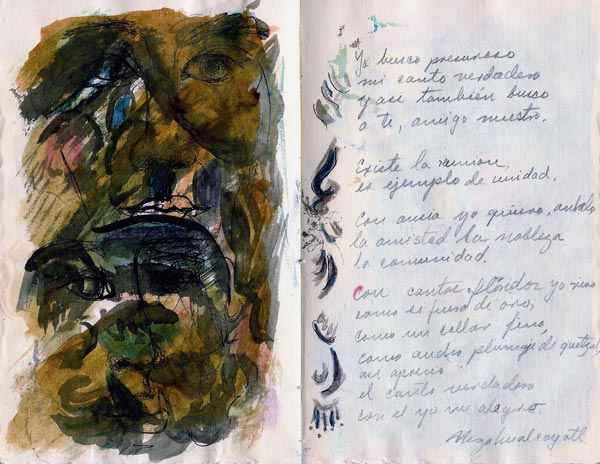 Yo busco presuroso
mi canto verdadero
y así también busco
a ti, amigo nuestro.
Existe la reunion,
es ejemplo de unidad.
Con ansia yo quiero, anhelo
la amistad la nobleza
la comunidad.
Con cantos yo vivo
como si fuera de oro,
como un collar fino,
como ancho plumaje de quetzal,
mi aprecio
el canto verdadero
con el yo me alegro.
Nezahualcoyotl